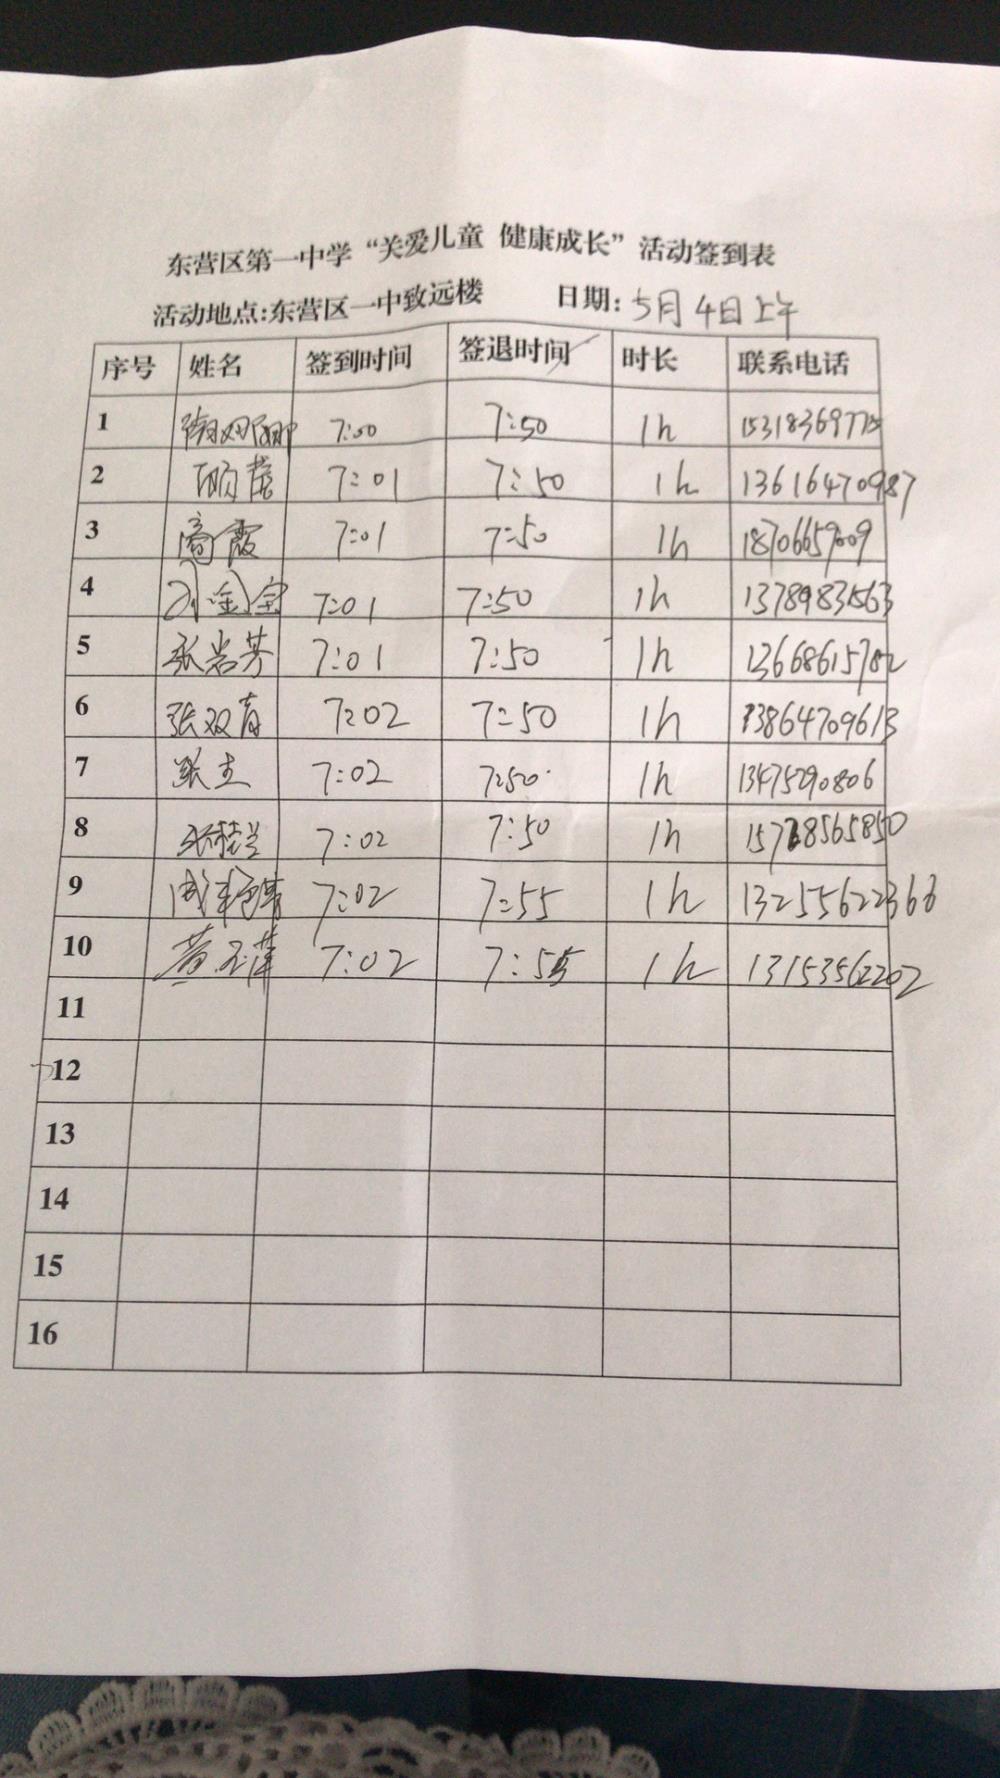 东营区第一中学“关爱儿童 健康成长”活动签到表
活动地点:东营区一中致远楼 日期: 5月4日上午
序号 姓名 签到时间 签退时间 时长 联系电话
1 7:50 7:50 1h
2 7:01 7:50 1h 13616470987
3 霞 7:01 7:50 1h 18706659009
4 刘金宝 7:01 7:50 1h 13789831563
5 张岩芳 7:01 7:50 1h 13668615702
6 张双青 7:02 7:50 1h 13864709613
7 7:02 7:50 1h 13475290806
8 张桂兰 7:02 7:50 1h
9 7:02 7:55 1h 13255622366
10 黄玉萍 7:02 7:55 1h 13153562202
11
12
13
14
15
16